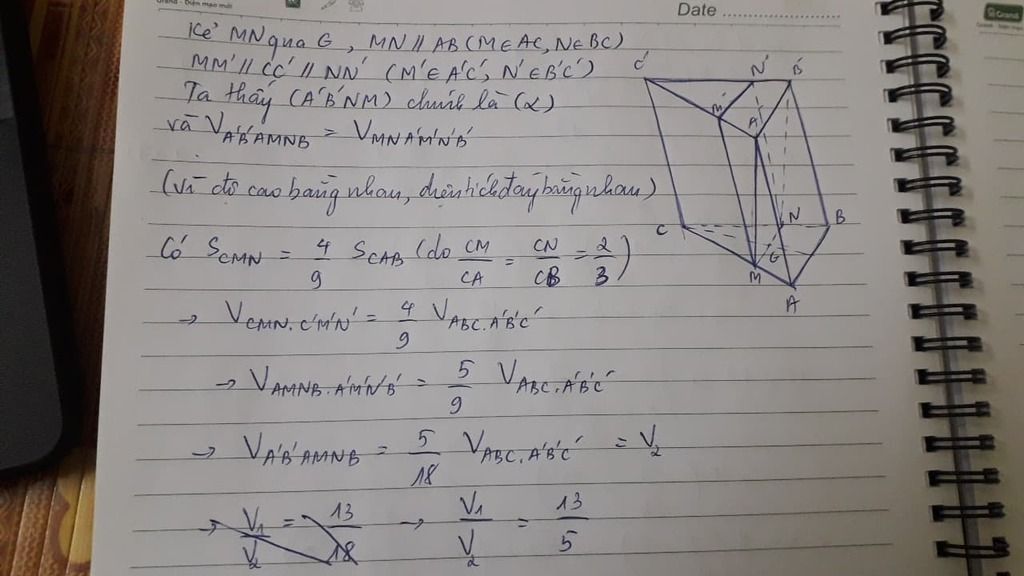 Grand - Diện mạo mới
Date
Grand
Kẻ MN qua G, MN // AB (M ∈ AC, N ∈ BC)
MM' // CC' // NN' (M' ∈ A'C', N' ∈ B'C')
Ta thấy (A'B'NM) chính là (α)
và V_A'B'AMNB = V_MNA'M'N'B'
(vì độ cao bằng nhau, diện tích đáy bằng nhau)
Có S_CMN = 4/9 S_CAB (do CM/CA = CN/CB = 2/3)
→ V_CMN.C'M'N' = 4/9 V_ABC.A'B'C'
→ V_AMNB.A'M'N'B' = 5/9 V_ABC.A'B'C'
→ V_A'B'AMNB = 5/18 V_ABC.A'B'C' = V_2
→ V_1/V_2 = 13/18 → V_1/V_2 = 13/5
C' N' B'
M' A'
C N B
G
M A